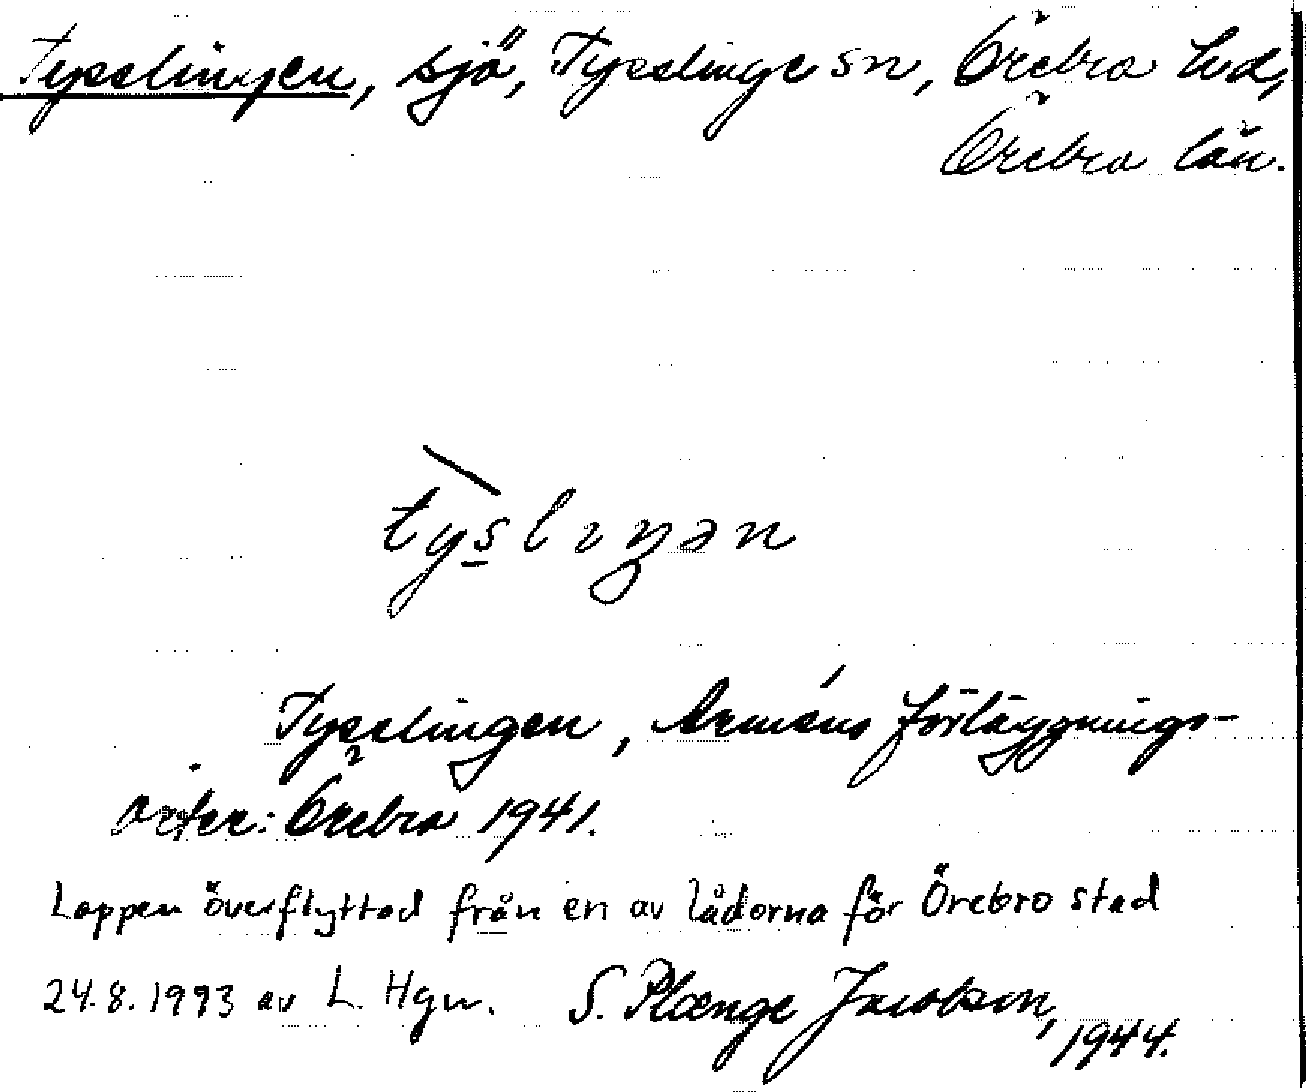 Tysslingen, sjö, Tysslinge sn, Örebro hd,
Örebro län.
tyslıŋən
Tysslingen, Arméns förläggnings-
orter: Örebro 1941.
Lappen överflyttad från en av lådorna för Örebro stad
24.8.1993 av L. Hgn. S. Plænge Jacobson,
1944.